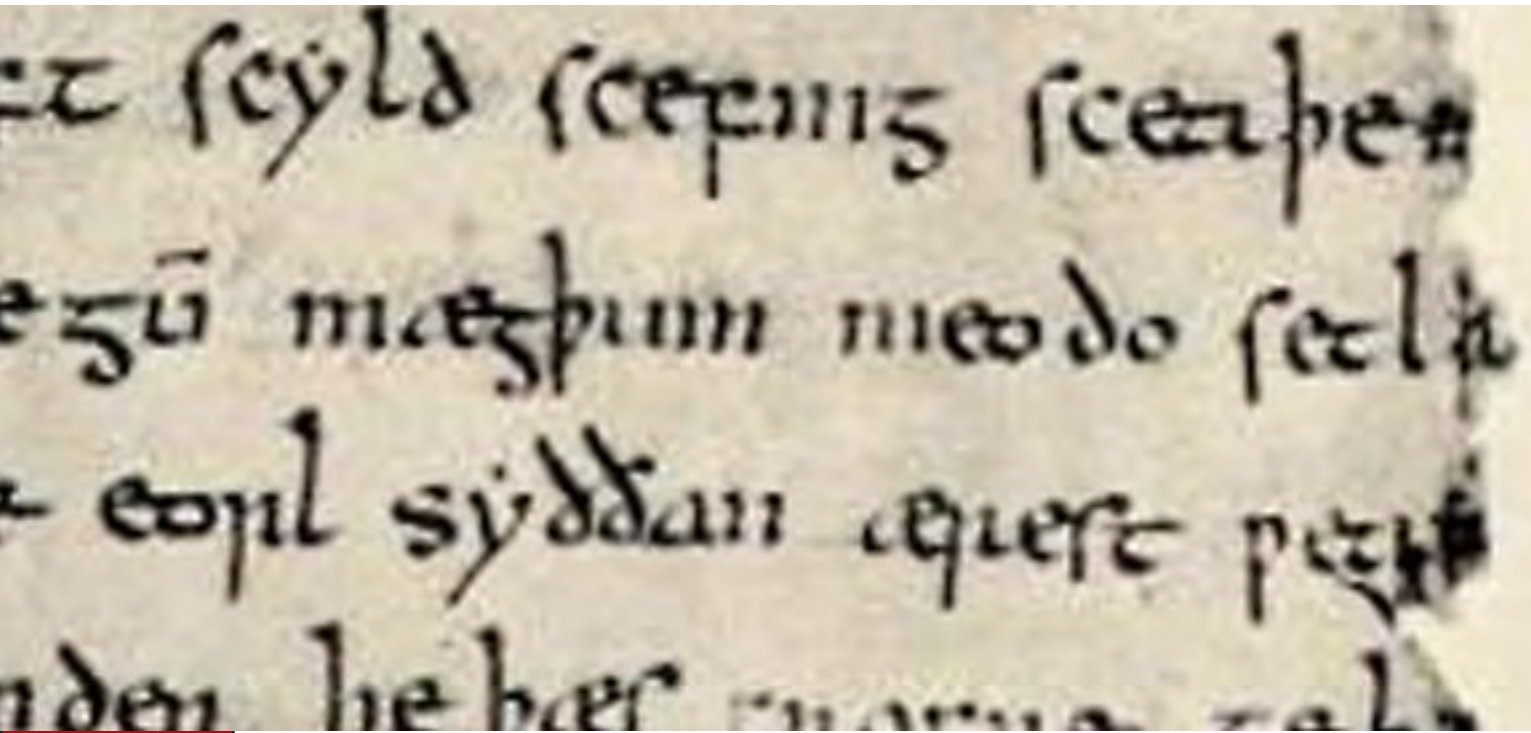 ft scyld scefing sceaþen
egū mægþum meodo setla
eorl syððan ærest
nden he þæs